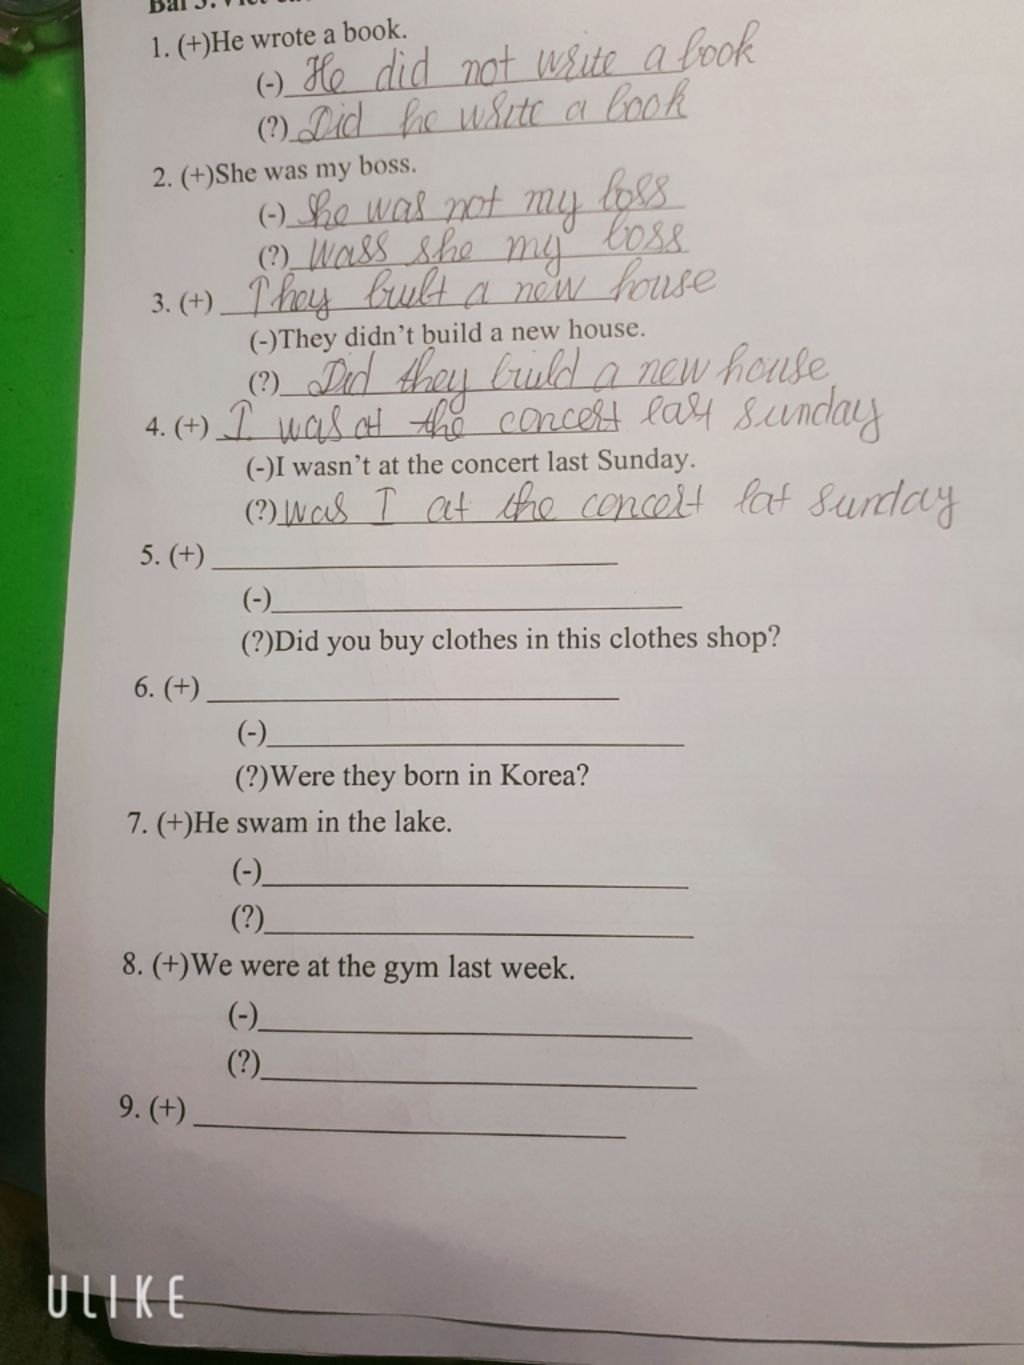 Bài 3. Viết
1. (+)He wrote a book.
(-) He did not write a book
(?) Did he write a book
2. (+)She was my boss.
(-) she was not my boss
(?) wass she my boss
3. (+) They built a new house
(-)They didn't build a new house.
(?) Did they build a new house
4. (+) I was at the concert last sunday
(-)I wasn't at the concert last Sunday.
(?) was I at the concert lat sunday
5. (+)
(-)
(?)Did you buy clothes in this clothes shop?
6. (+)
(-)
(?)Were they born in Korea?
7. (+)He swam in the lake.
(-)
(?)
8. (+)We were at the gym last week.
(-)
(?)
9. (+)
ULIKE